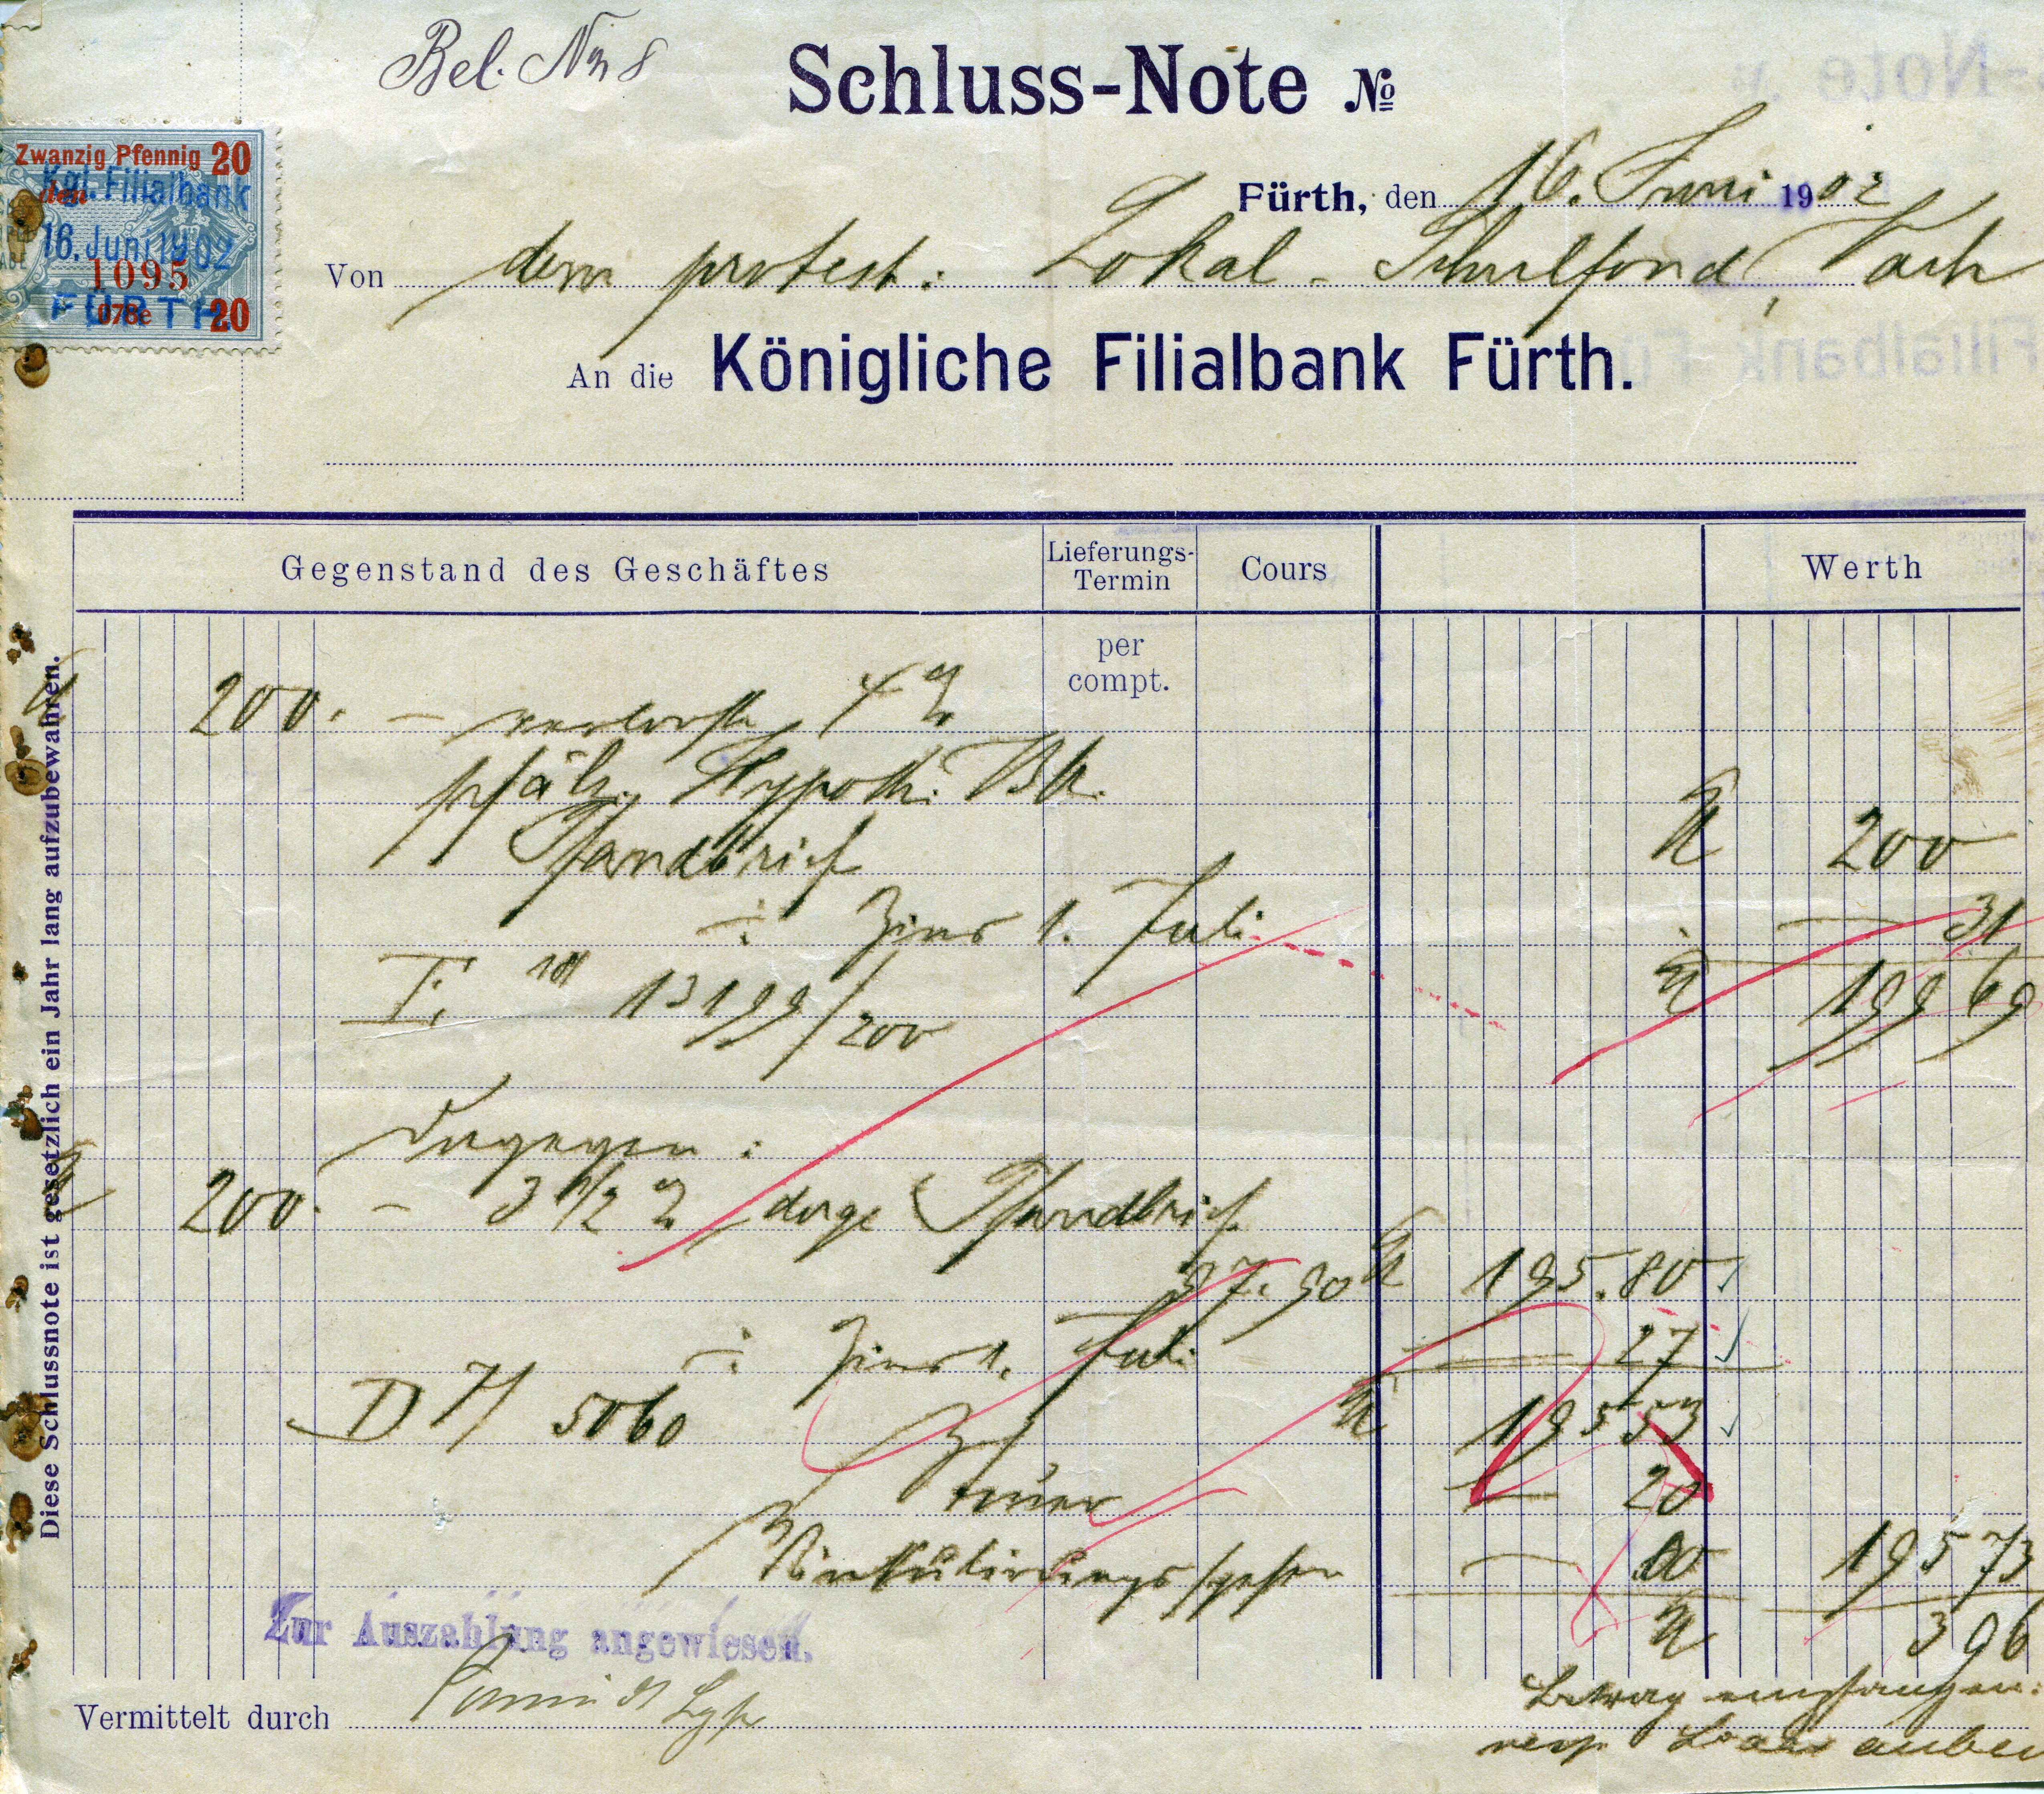 Bel. No 8
Schluss-Note No
Zwanzig Pfennig 20
den
Kgl. Filialbank
16. Juni 1902
1095
FÜRTH
078e 20
Fürth, den 16. Juni 1902
Von dem protest. Lokal-Schulfond, Vach
An die Königliche Filialbank Fürth.
Gegenstand des Geschäftes Lieferungs-Termin Cours Werth
per
compt.
M 200. – verloste 4 %
pfälz. Hypoth. Bk.
Pfandbrief M 200
÷ Zins 1. Juli – 31
13199/200 M 199 69
Dagegen:
M 200. – 3 1/2 % Pfandbrief
97.90 M 195.80
÷ Zins 1. Juli – 27
D 7/ 5060 M 195 53
Steuer – 20
Vinkulirungsspesen – 195 73
M 3 96
Zur Auszahlung angewiesen.
Vermittelt durch
Betrag empfangen:
Diese Schlussnote ist gesetzlich ein Jahr lang aufzubewahren.